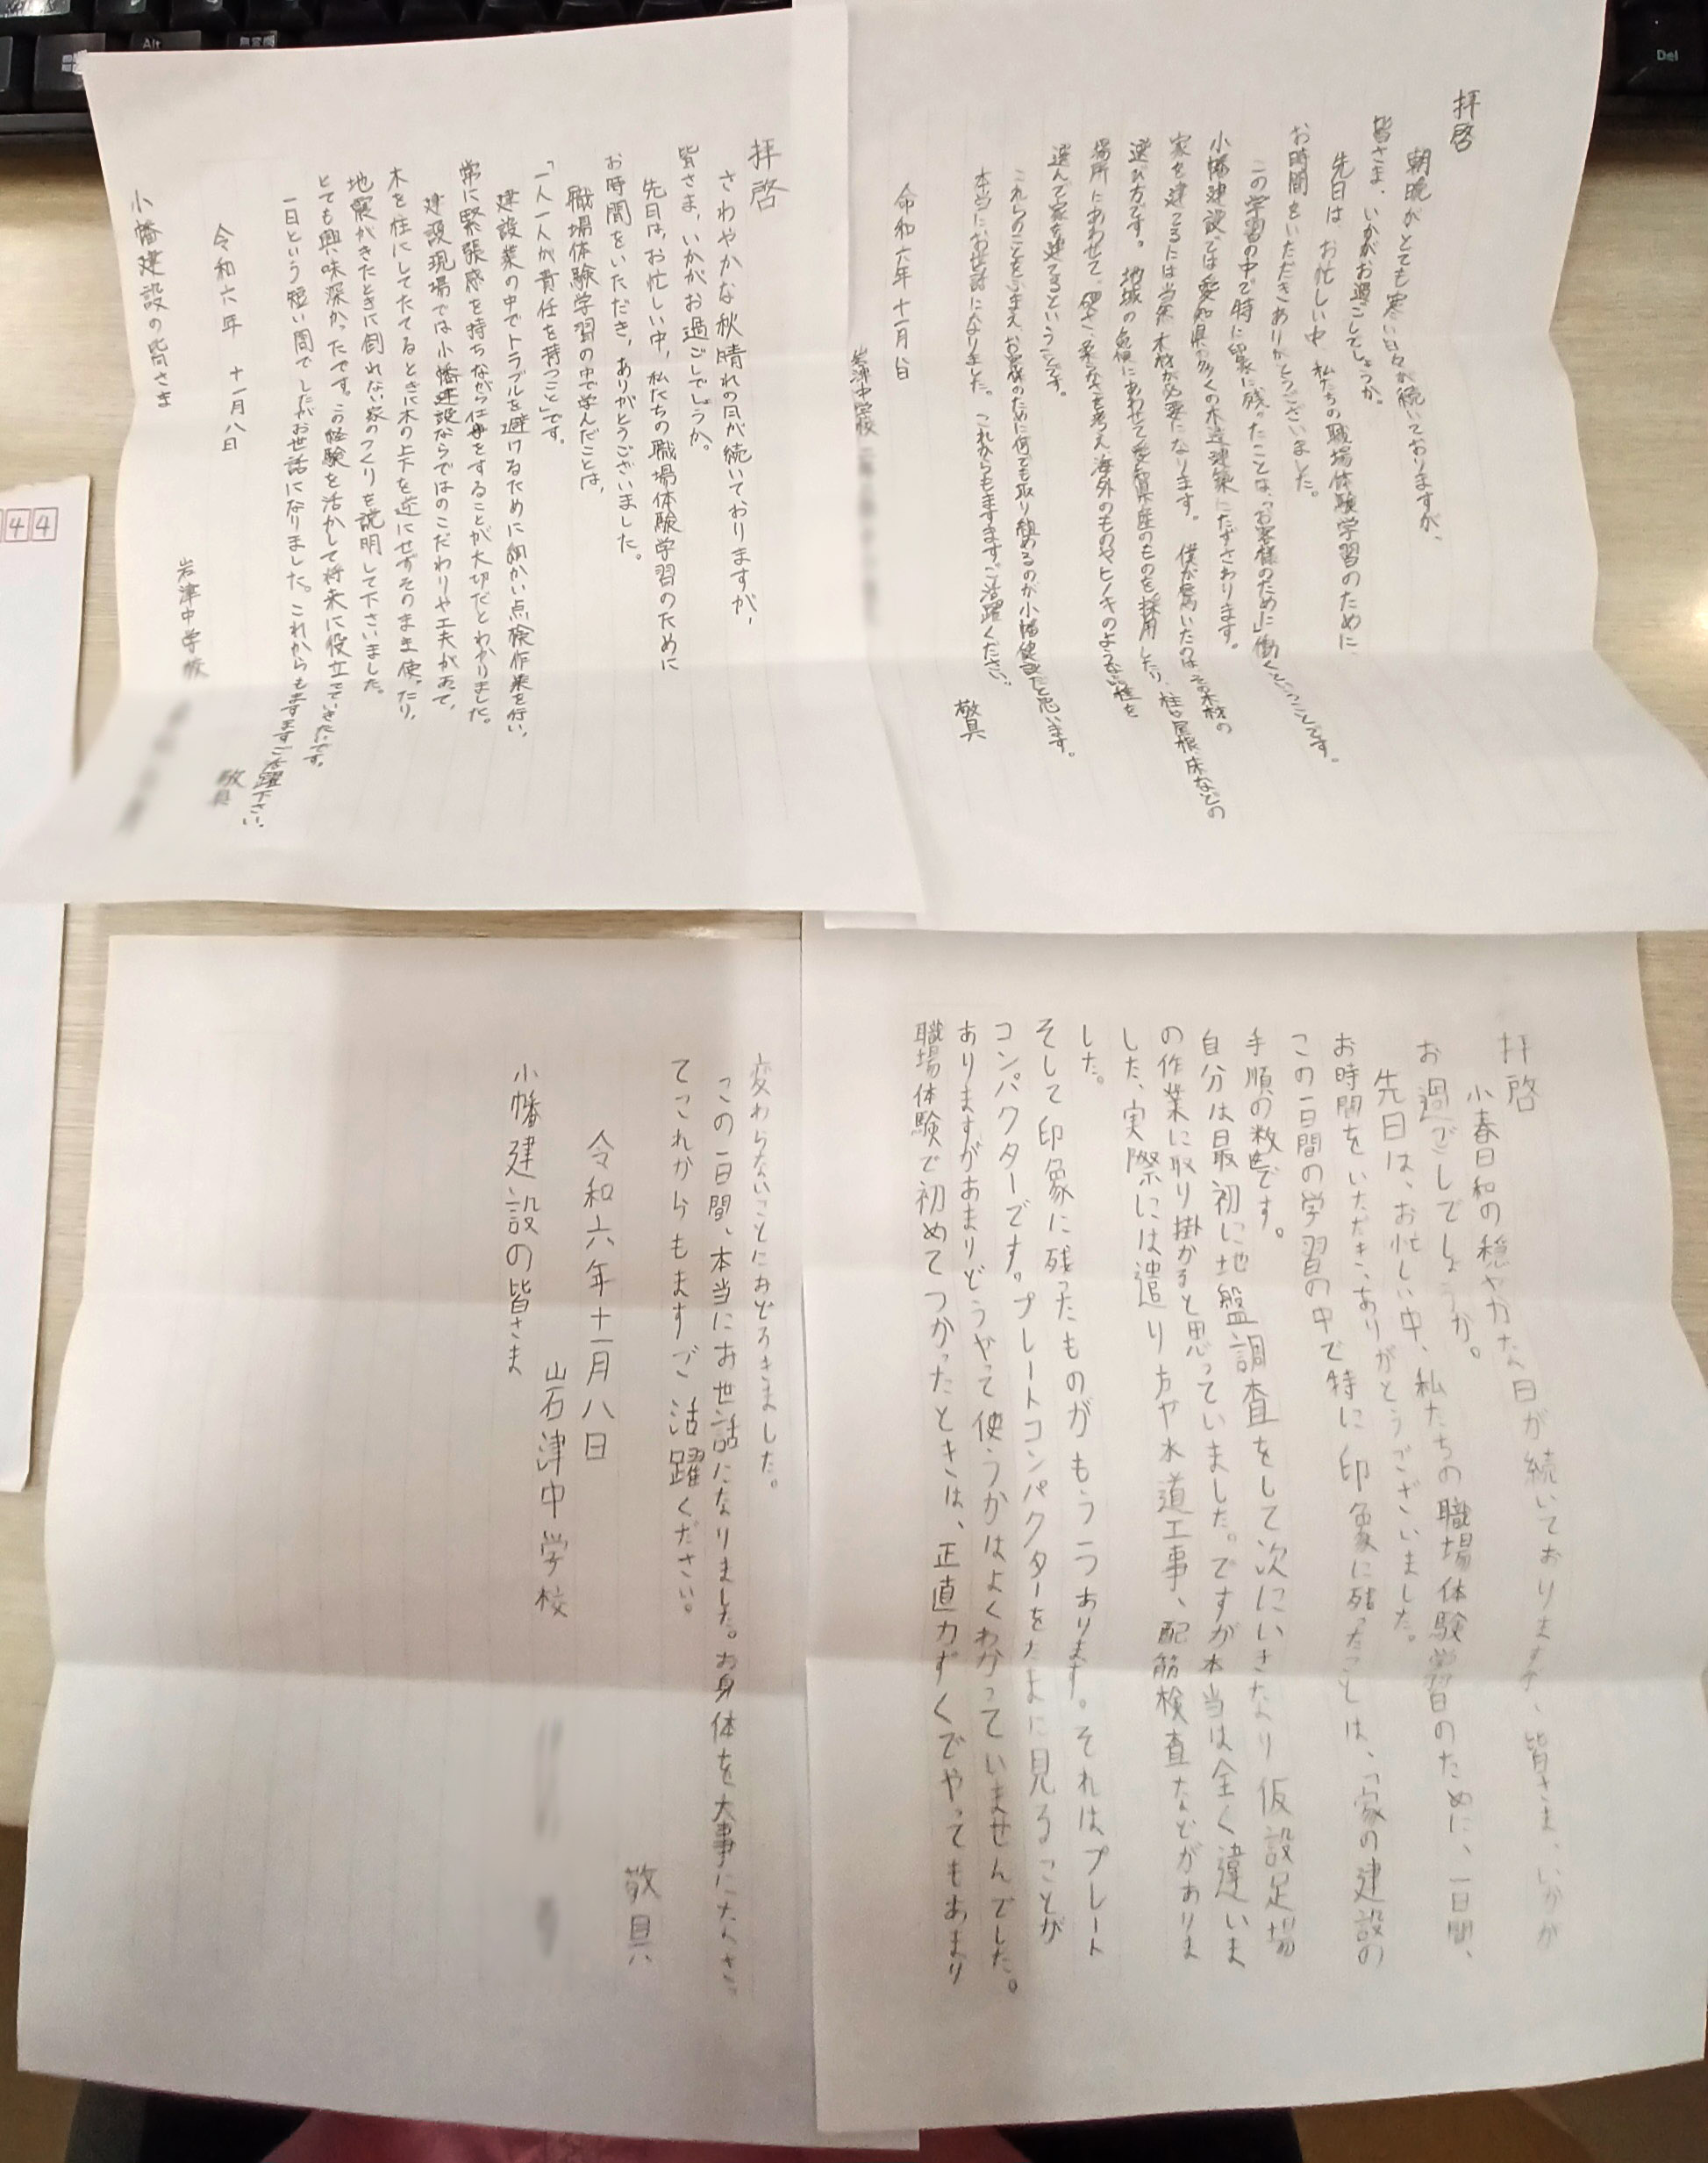 拝啓
朝晩がとても寒い日々が続いておりますが、
皆さま、いかがお過ごしでしょうか。
先日は、お忙しい中、私たちの職場体験学習のために、
お時間をいただきありがとうございました。
この学習の中で特に印象に残ったことは、「お客様のために働く」ということです。
小幡建設では愛知県の多くの木造建築にたずさわります。
家を建てるには当然、木材が必要になります。僕が驚いたのはその木材の
選び方です。地域の危険にあわせて愛知県産のものを採用したり、柱や屋根、床などの
場所にあわせて、硬さ、柔らかさを考え、海外のものやヒノキのような柱を
選んで家を建てるということです。
これらのことをふまえ、お客様のために何でも取り組めるのが小幡建設だと思います。
本当にお世話になりました。これからもますますご活躍ください。
敬具
令和六年十一月八日
岩津中学校
拝啓
さわやかな秋晴れの日が続いておりますが、
皆さま、いかがお過ごしでしょうか。
先日は、お忙しい中、私たちの職場体験学習のために
お時間をいただき、ありがとうございました。
職場体験学習の中で学んだことは、
「一人一人が責任を持つこと」です。
建設業の中でトラブルを避けるために細かい点検作業を行い、
常に緊張感を持ちながら仕事をすることが大切だとわかりました。
建設現場では小幡建設ならではのこだわりや工夫があって、
木を柱にしてたてるときに木の上下を逆にせずそのまま使ったり、
地震がきたときに倒れない家のつくりを説明して下さいました。
とても興味深かったです。この経験を活かして将来に役立てていきたいです。
一日という短い間でしたがお世話になりました。これからもますますご活躍下さい。
敬具
令和六年 十一月八日
岩津中学校
小幡建設の皆さま
44
Alt
Del
拝啓
小春日和の穏やかな日が続いておりますが、皆さま、いかが
お過ごしでしょうか。
先日は、お忙しい中、私たちの職場体験学習のために、一日間、
お時間をいただき、ありがとうございました。
この一日間の学習の中で特に印象に残ったことは、「家の建設の
手順の数」です。
自分は最初に地盤調査をして次にいきなり仮設足場
の作業に取り掛かると思っていました。ですが本当は全く違いま
した、実際には遣り方や水道工事、配筋検査などがありま
した。
そして印象に残ったものがもう一つあります。それはプレート
コンパクターです。プレートコンパクターをたまに見ることが
ありますがあまりどうやって使うかはよくわかっていませんでした。
職場体験で初めてつかったときは、正直力ずくでやってもあまり
変わらないことにおどろきました。
この一日間、本当にお世話になりました。お身体を大事になさっ
てこれからもますますご活躍ください。
敬具
令和六年十一月八日
岩津中学校
小幡建設の皆さま